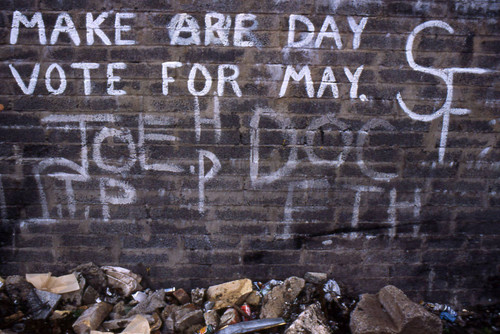 MAKE JOE ARE DAY
VOTE FOR MAY.
SF
JOE DOC